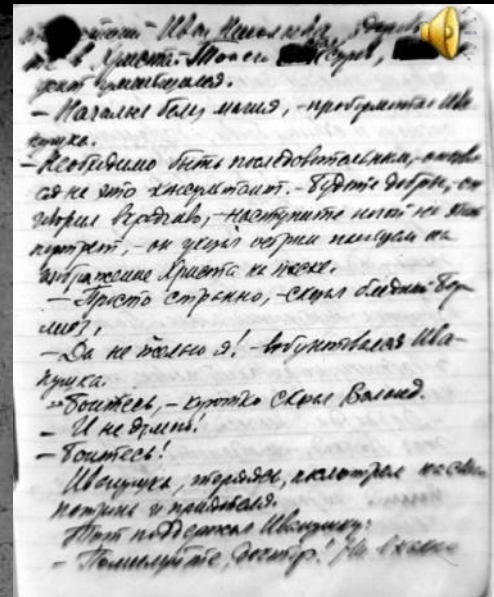 Иван Николаевич, здорово
те в Христа. – Только
– Начались белые магия, – пробурчал Ива-
нушка.
– Необходимо быть последовательным, – отозвал-
ся на это консультант. – Будьте добры, – он
говорил вкрадчиво, – наступите ногой на этот
портрет, – он указал острым пальцем на
изображение Христа на песке.
– Просто странно, – сказал бледный Бер-
лиоз,
– Да не желаю я! – взбунтовался Ива-
нушка.
– Боитесь, – коротко сказал Воланд.
– И не думаю!
– Боитесь!
Иванушка, теряясь, посмотрел на
патрона и приятеля.
Тот поддержал Иванушку:
– Помилуйте, доктор! Ни в каком